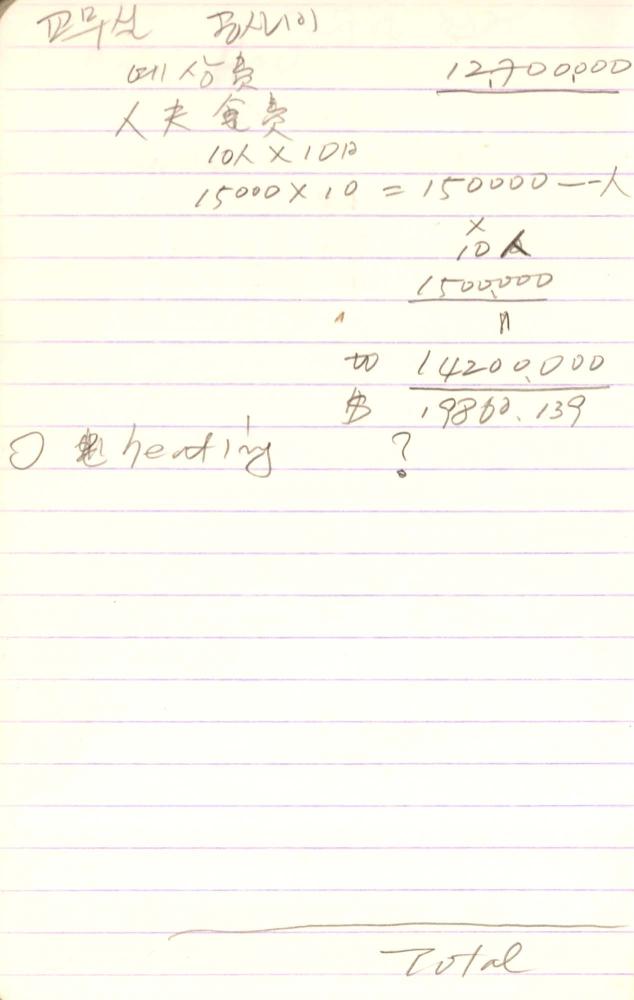 교무실 공사비
예상費 12,700,000
人夫 食費
10人 × 10日
15000 × 10 = 150000 一人
×
10人
1500,000
14200,000
$ 19860.139
○ heating ?
Total